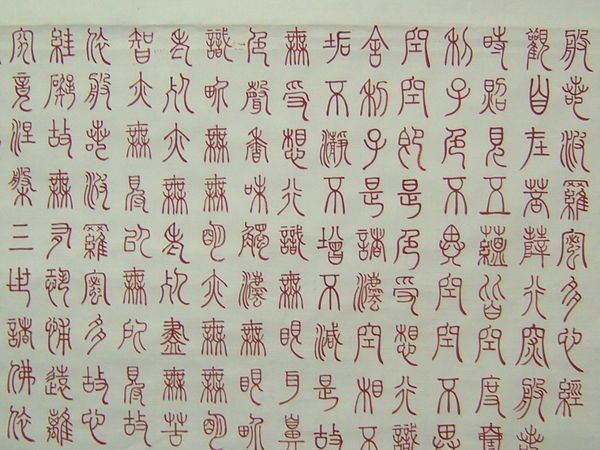 般若波羅蜜多心經
觀自在菩薩行深般若
時照見五蘊皆空度
利子色不異空空不異
空空即是色受想行識
舍利子是諸法空相不
垢不淨不增不減是故
無受想行識無眼耳鼻
色聲香味觸法無眼界
識界無無明亦無無明
老死亦無老死盡無苦
智亦無得以無所得故
依般若波羅蜜多故心
罣礙故無有恐怖遠離
究竟涅槃三世諸佛依